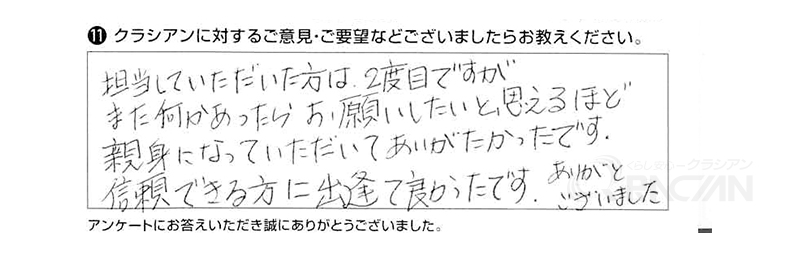 ⓫ クラシアンに対するご意見・ご要望などございましたらお教えください。
担当していただいた方は、2度目ですが
また何かあったら お願いしたいと思えるほど
親身になっていただいてありがたかったです.
信頼できる方に出逢て良かったです. ありがと
ございました
くらし安心クラシアン
QRACIAN
アンケートにお答えいただき誠にありがとうございました。